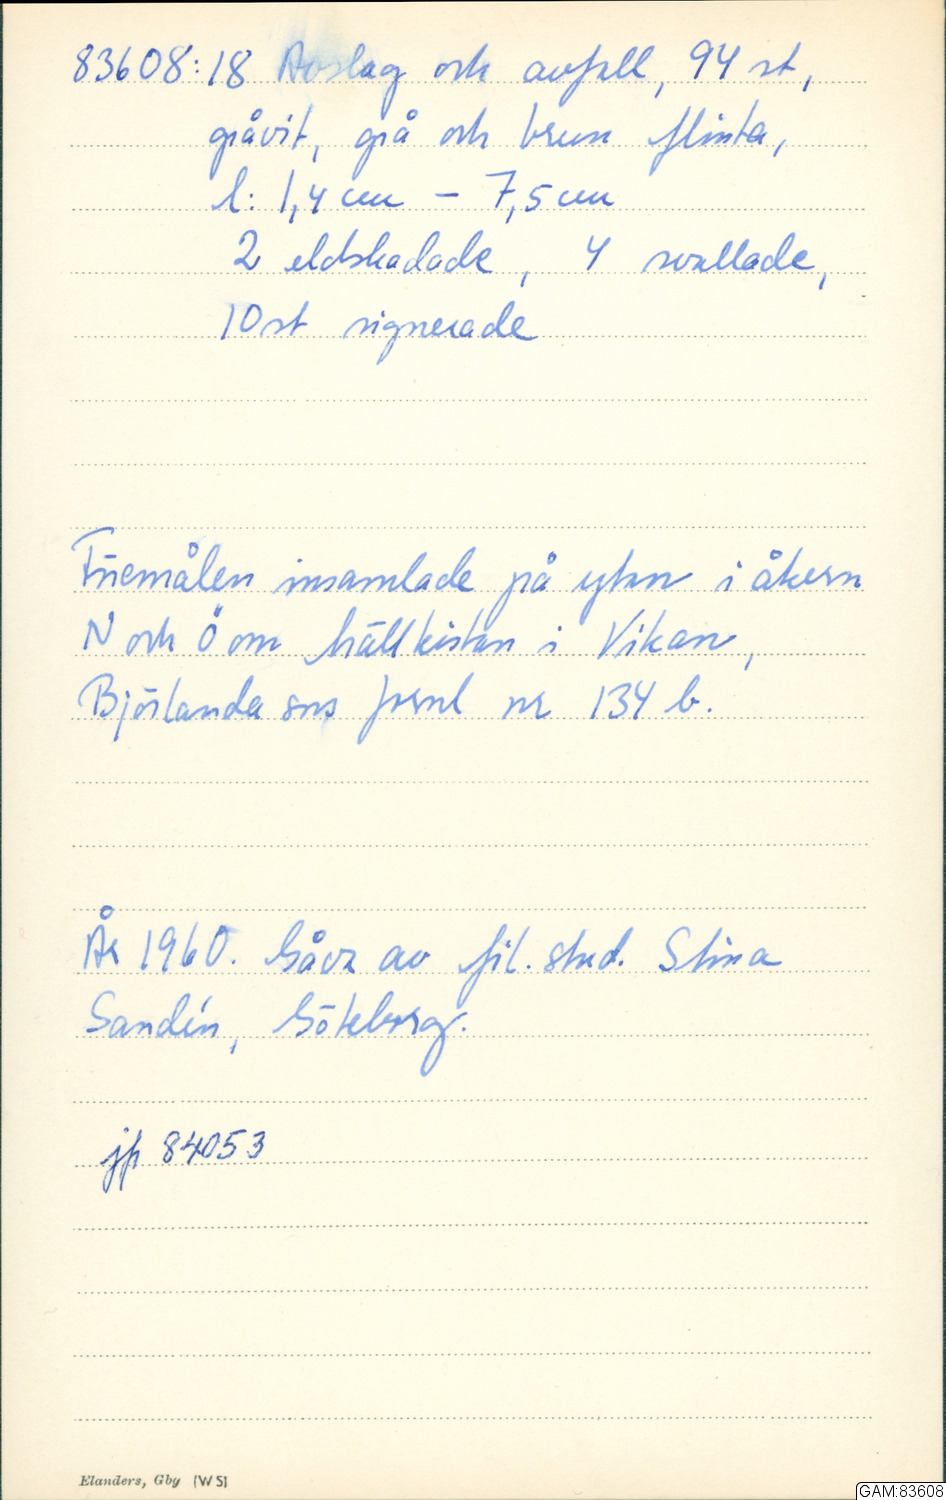 83608:18 Avslag och avfall, 94 st,
gråvit, grå och brun flinta,
l: 1,4 cm – 7,5 cm
2 eldskadade, 4 svallade,
10 st signerade
Föremålen insamlade på ytan i åkern
N och Ö om hällkistan i Vikan,
Björlanda sns fornl nr 134 b.
År 1960. Gåva av fil. stud. Stina
Sandén, Göteborg.
jfr 84053
Elanders, Gby (WS)
GAM:83608